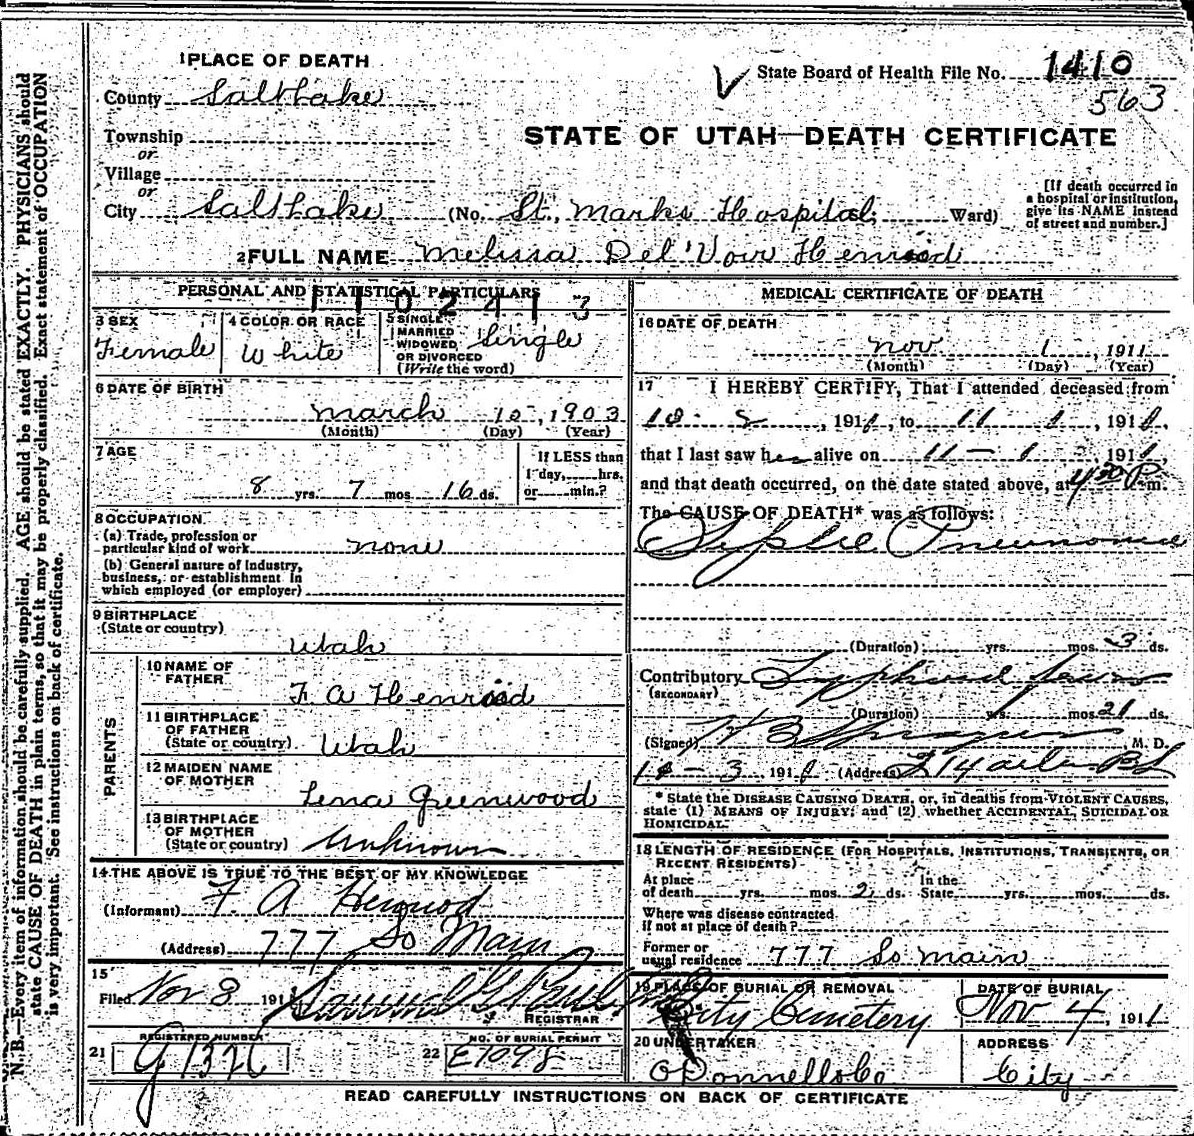 1 PLACE OF DEATH
County Salt Lake
Township
or
Village
or
City Salt Lake (No. St. Marks Hospital; Ward)
State Board of Health File No. 1410
563
STATE OF UTAH—DEATH CERTIFICATE
[If death occurred in
a hospital or institution,
give its NAME instead
of street and number.]
2 FULL NAME Melissa Del'Vour Henriod
PERSONAL AND STATISTICAL PARTICULARS
1102413
3 SEX
Female
4 COLOR OR RACE
White
5 SINGLE
MARRIED
WIDOWED,
OR DIVORCED
(Write the word)
Single
6 DATE OF BIRTH
March 15, 1903
(Month) (Day) (Year)
7 AGE
8 yrs. 7 mos. 16 ds.
If LESS than
1 day, hrs.
or min.?
8 OCCUPATION
(a) Trade, profession or
particular kind of work none
(b) General nature of Industry,
business, or establishment in
which employed (or employer)
9 BIRTHPLACE
(State or country)
Utah
PARENTS
10 NAME OF
FATHER
F. A Henriod
11 BIRTHPLACE
OF FATHER
(State or country) Utah
12 MAIDEN NAME
OF MOTHER
Lena Greenwood
13 BIRTHPLACE
OF MOTHER
(State or country) Unknown
14 THE ABOVE IS TRUE TO THE BEST OF MY KNOWLEDGE
(Informant) F. A Henriod
(Address) 777 So Main
15
Filed Nov 8 191
REGISTRAR
21 REGISTERED NUMBER
G1326
22 NO. OF BURIAL PERMIT
E7098
MEDICAL CERTIFICATE OF DEATH
16 DATE OF DEATH
Nov 1, 1911
(Month) (Day) (Year)
17 I HEREBY CERTIFY, That I attended deceased from
10-2, 1911, to 11 1, 1911,
that I last saw her alive on 11-1, 1911,
and that death occurred, on the date stated above, at 4 30 P.m.
The CAUSE OF DEATH* was as follows:
Pneumonia
(Duration) yrs. mos. 3 ds.
Contributory Typhoid fever
(SECONDARY)
(Duration) yrs. mos. 21 ds.
(Signed) M. D.
3 191 (Address)
* State the DISEASE CAUSING DEATH, or, in deaths from VIOLENT CAUSES,
state (1) MEANS OF INJURY; and (2) whether ACCIDENTAL, SUICIDAL OR
HOMICIDAL.
18 LENGTH OF RESIDENCE (FOR HOSPITALS, INSTITUTIONS, TRANSIENTS, OR
RECENT RESIDENTS)
At place
of death yrs. mos. 2 ds. In the
State yrs. mos. ds.
Where was disease contracted
if not at place of death?
Former or
usual residence 777 So main
19 PLACE OF BURIAL OR REMOVAL
City Cemetery
DATE OF BURIAL
Nov 4, 1911
20 UNDERTAKER
O'Donnell & Co
ADDRESS
City
READ CAREFULLY INSTRUCTIONS ON BACK OF CERTIFICATE
N. B.—Every item of information should be carefully supplied. AGE should be stated EXACTLY. PHYSICIANS should
state CAUSE OF DEATH in plain terms, so that it may be properly classified. Exact statement of OCCUPATION
is very important. See instructions on back of certificate.